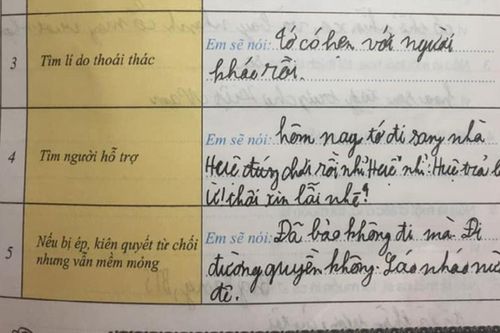 3
Tìm lí do thoái thác
Em sẽ nói: Tớ có hẹn với người
khác rồi.
4
Tìm người hỗ trợ
Em sẽ nói: hôm nay tớ đi sang nhà
Huệ đúng chưa rồi nhỉ Huệ nhỉ. Huệ trả l
Ừ! thôi xin lỗi nhé!
5
Nếu bị ép, kiên quyết từ chối
nhưng vẫn mềm mỏng
Em sẽ nói: Đã bảo không đi mà. Đi
đường quyền không. Láo nháo nữ
đê.